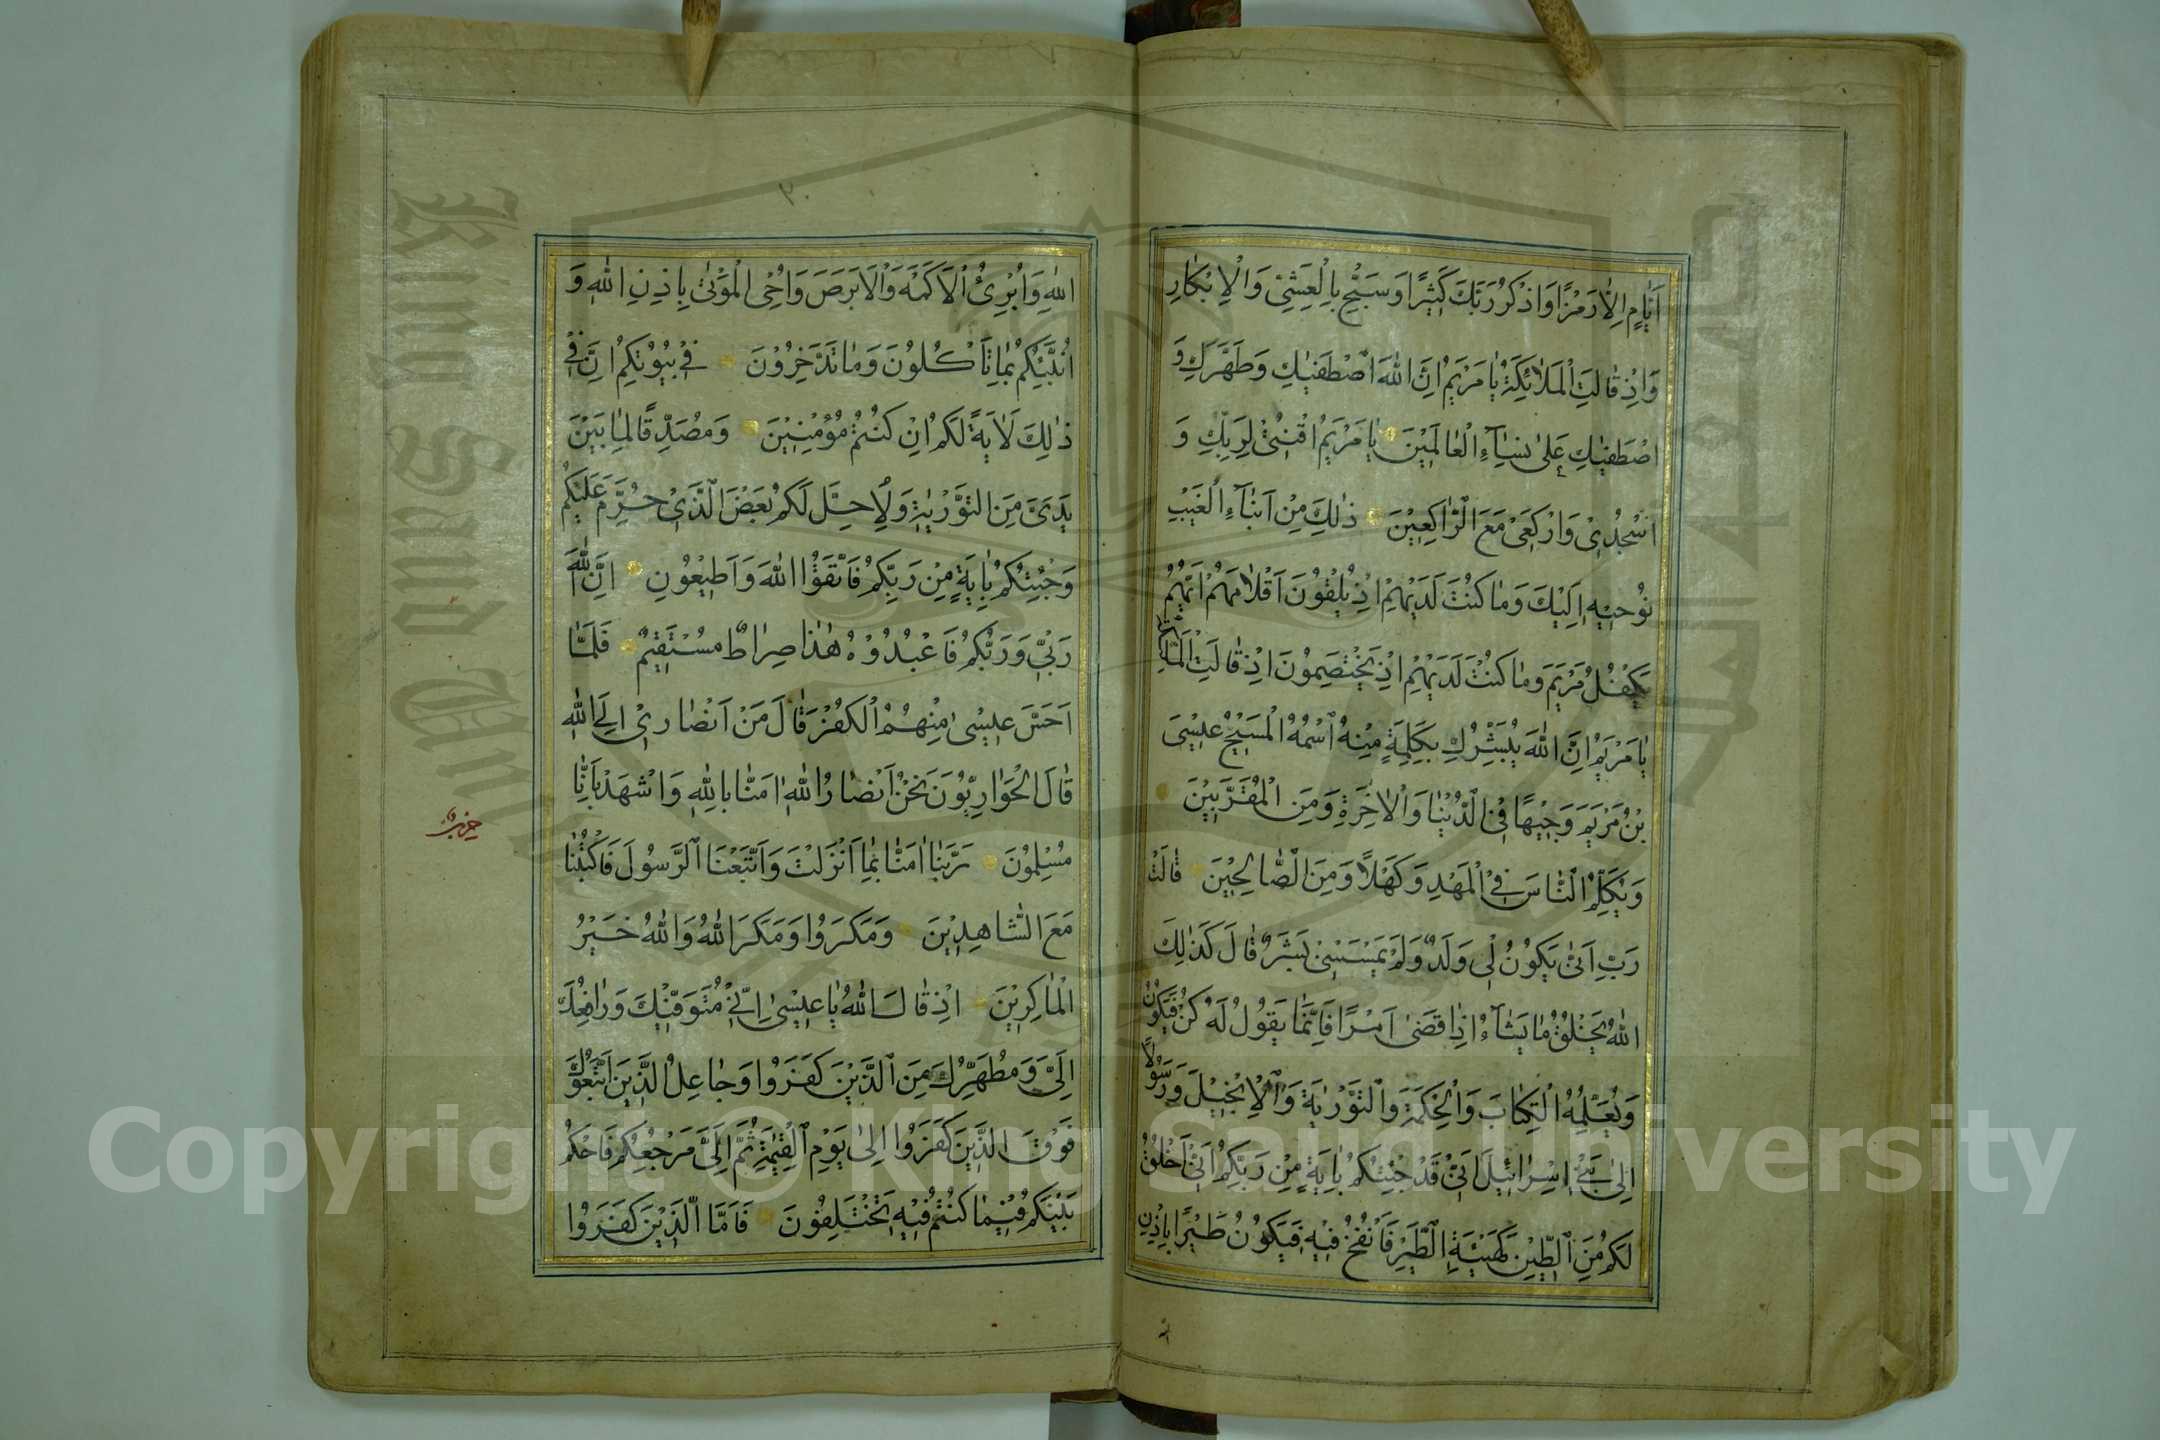 اَيَّامٍ اِلَّا رَمْزًا وَاذْكُرْ رَبَّكَ كَثِيْرًا وَسَبِّحْ بِالْعَشِيِّ وَالْاِبْكَارِ
وَاِذْ قَالَتِ الْمَلٰائِكَةُ يٰا مَرْيَمُ اِنَّ اللّٰهَ اصْطَفٰيكِ وَطَهَّرَكِ وَ
اصْطَفٰيكِ عَلٰى نِسَاۤءِ الْعٰالَمِيْنَ يٰا مَرْيَمُ اقْنُتِيْ لِرَبِّكِ وَ
اسْجُدِيْ وَارْكَعِيْ مَعَ الرَّاكِعِيْنَ ذٰلِكَ مِنْ اَنْبَاۤءِ الْغَيْبِ
نُوْحِيْهِ اِلَيْكَ وَمٰا كُنْتَ لَدَيْهِمْ اِذْ يُلْقُوْنَ اَقْلَامَهُمْ اَيُّهُمْ
يَكْفُلُ مَرْيَمَ وَمٰا كُنْتَ لَدَيْهِمْ اِذْ يَخْتَصِمُوْنَ اِذْ قٰالَتِ الْمَلٰئِكَةُ
يٰا مَرْيَمُ اِنَّ اللّٰهَ يُبَشِّرُكِ بِكَلِمَةٍ مِنْهُ اسْمُهُ الْمَسِيْحُ عِيْسَى
بْنُ مَرْيَمَ وَجِيْهًا فِي الدُّنْيٰا وَالْاٰخِرَةِ وَمِنَ الْمُقَرَّبِيْنَ
وَيُكَلِّمُ النَّاسَ فِي الْمَهْدِ وَكَهْلًا وَمِنَ الصَّالِحِيْنَ قٰالَتْ
رَبِّ اَنّٰى يَكُوْنُ لِيْ وَلَدٌ وَلَمْ يَمْسَسْنِيْ بَشَرٌ قٰالَ كَذٰلِكِ
اللّٰهُ يَخْلُقُ مٰا يَشَاۤءُ اِذٰا قَضٰى اَمْرًا فَاِنَّمَا يَقُوْلُ لَهُ كُنْ فَيَكُوْنُ
وَيُعَلِّمُهُ الْكِتٰابَ وَالْحِكْمَةَ وَالتَّوْرٰيةَ وَالْاِنْجِيْلَ وَرَسُوْلًا
اِلٰى بَنِيْ اِسْرٰائِيْلَ اَنِّيْ قَدْ جِئْتُكُمْ بِاٰيَةٍ مِنْ رَبِّكُمْ اَنِّيْ اَخْلُقُ
لَكُمْ مِنَ الطِّيْنِ كَهَيْئَةِ الطَّيْرِ فَاَنْفُخُ فِيْهِ فَيَكُوْنُ طَيْرًا بِاِذْنِ
اللّٰهِ وَاُبْرِئُ الْاَكْمَهَ وَالْاَبْرَصَ وَاُحْيِ الْمَوْتٰى بِاِذْنِ اللّٰهِ وَ
اُنَبِّئُكُمْ بِمَا تَأْكُلُوْنَ وَمٰا تَدَّخِرُوْنَ فِيْ بُيُوْتِكُمْ اِنَّ فِيْ
ذٰلِكَ لَاٰيَةً لَكُمْ اِنْ كُنْتُمْ مُؤْمِنِيْنَ وَمُصَدِّقًا لِمٰا بَيْنَ
يَدَيَّ مِنَ التَّوْرٰيةِ وَلِاُحِلَّ لَكُمْ بَعْضَ الَّذِيْ حُرِّمَ عَلَيْكُمْ
وَجِئْتُكُمْ بِاٰيَةٍ مِنْ رَبِّكُمْ فَاتَّقُوا اللّٰهَ وَاَطِيْعُوْنِ اِنَّ اللّٰهَ
رَبِّيْ وَرَبُّكُمْ فَاعْبُدُوْهُ هٰذَا صِرٰاطٌ مُسْتَقِيْمٌ فَلَمَّا
اَحَسَّ عِيْسٰى مِنْهُمُ الْكُفْرَ قٰالَ مَنْ اَنْصَارِيْ اِلَى اللّٰهِ
قٰالَ الْحَوٰارِيُّوْنَ نَحْنُ اَنْصَارُ اللّٰهِ اٰمَنَّا بِاللّٰهِ وَاشْهَدْ بِاَنَّا
مُسْلِمُوْنَ رَبَّنٰا اٰمَنَّا بِمٰا اَنْزَلْتَ وَاتَّبَعْنَا الرَّسُوْلَ فَاكْتُبْنَا
مَعَ الشَّاهِدِيْنَ وَمَكَرُوا وَمَكَرَ اللّٰهُ وَاللّٰهُ خَيْرُ
الْمٰاكِرِيْنَ اِذْ قٰالَ اللّٰهُ يٰا عِيْسٰى اِنِّيْ مُتَوَفِّيْكَ وَرٰافِعُكَ
اِلَيَّ وَمُطَهِّرُكَ مِنَ الَّذِيْنَ كَفَرُوا وَجٰاعِلُ الَّذِيْنَ اتَّبَعُوْكَ
فَوْقَ الَّذِيْنَ كَفَرُوا اِلٰى يَوْمِ الْقِيٰمَةِ ثُمَّ اِلَيَّ مَرْجِعُكُمْ فَاَحْكُمُ
بَيْنَكُمْ فِيْمٰا كُنْتُمْ فِيْهِ تَخْتَلِفُوْنَ فَاَمَّا الَّذِيْنَ كَفَرُوا
حزب
Copyright © King Saud University
King Saud University